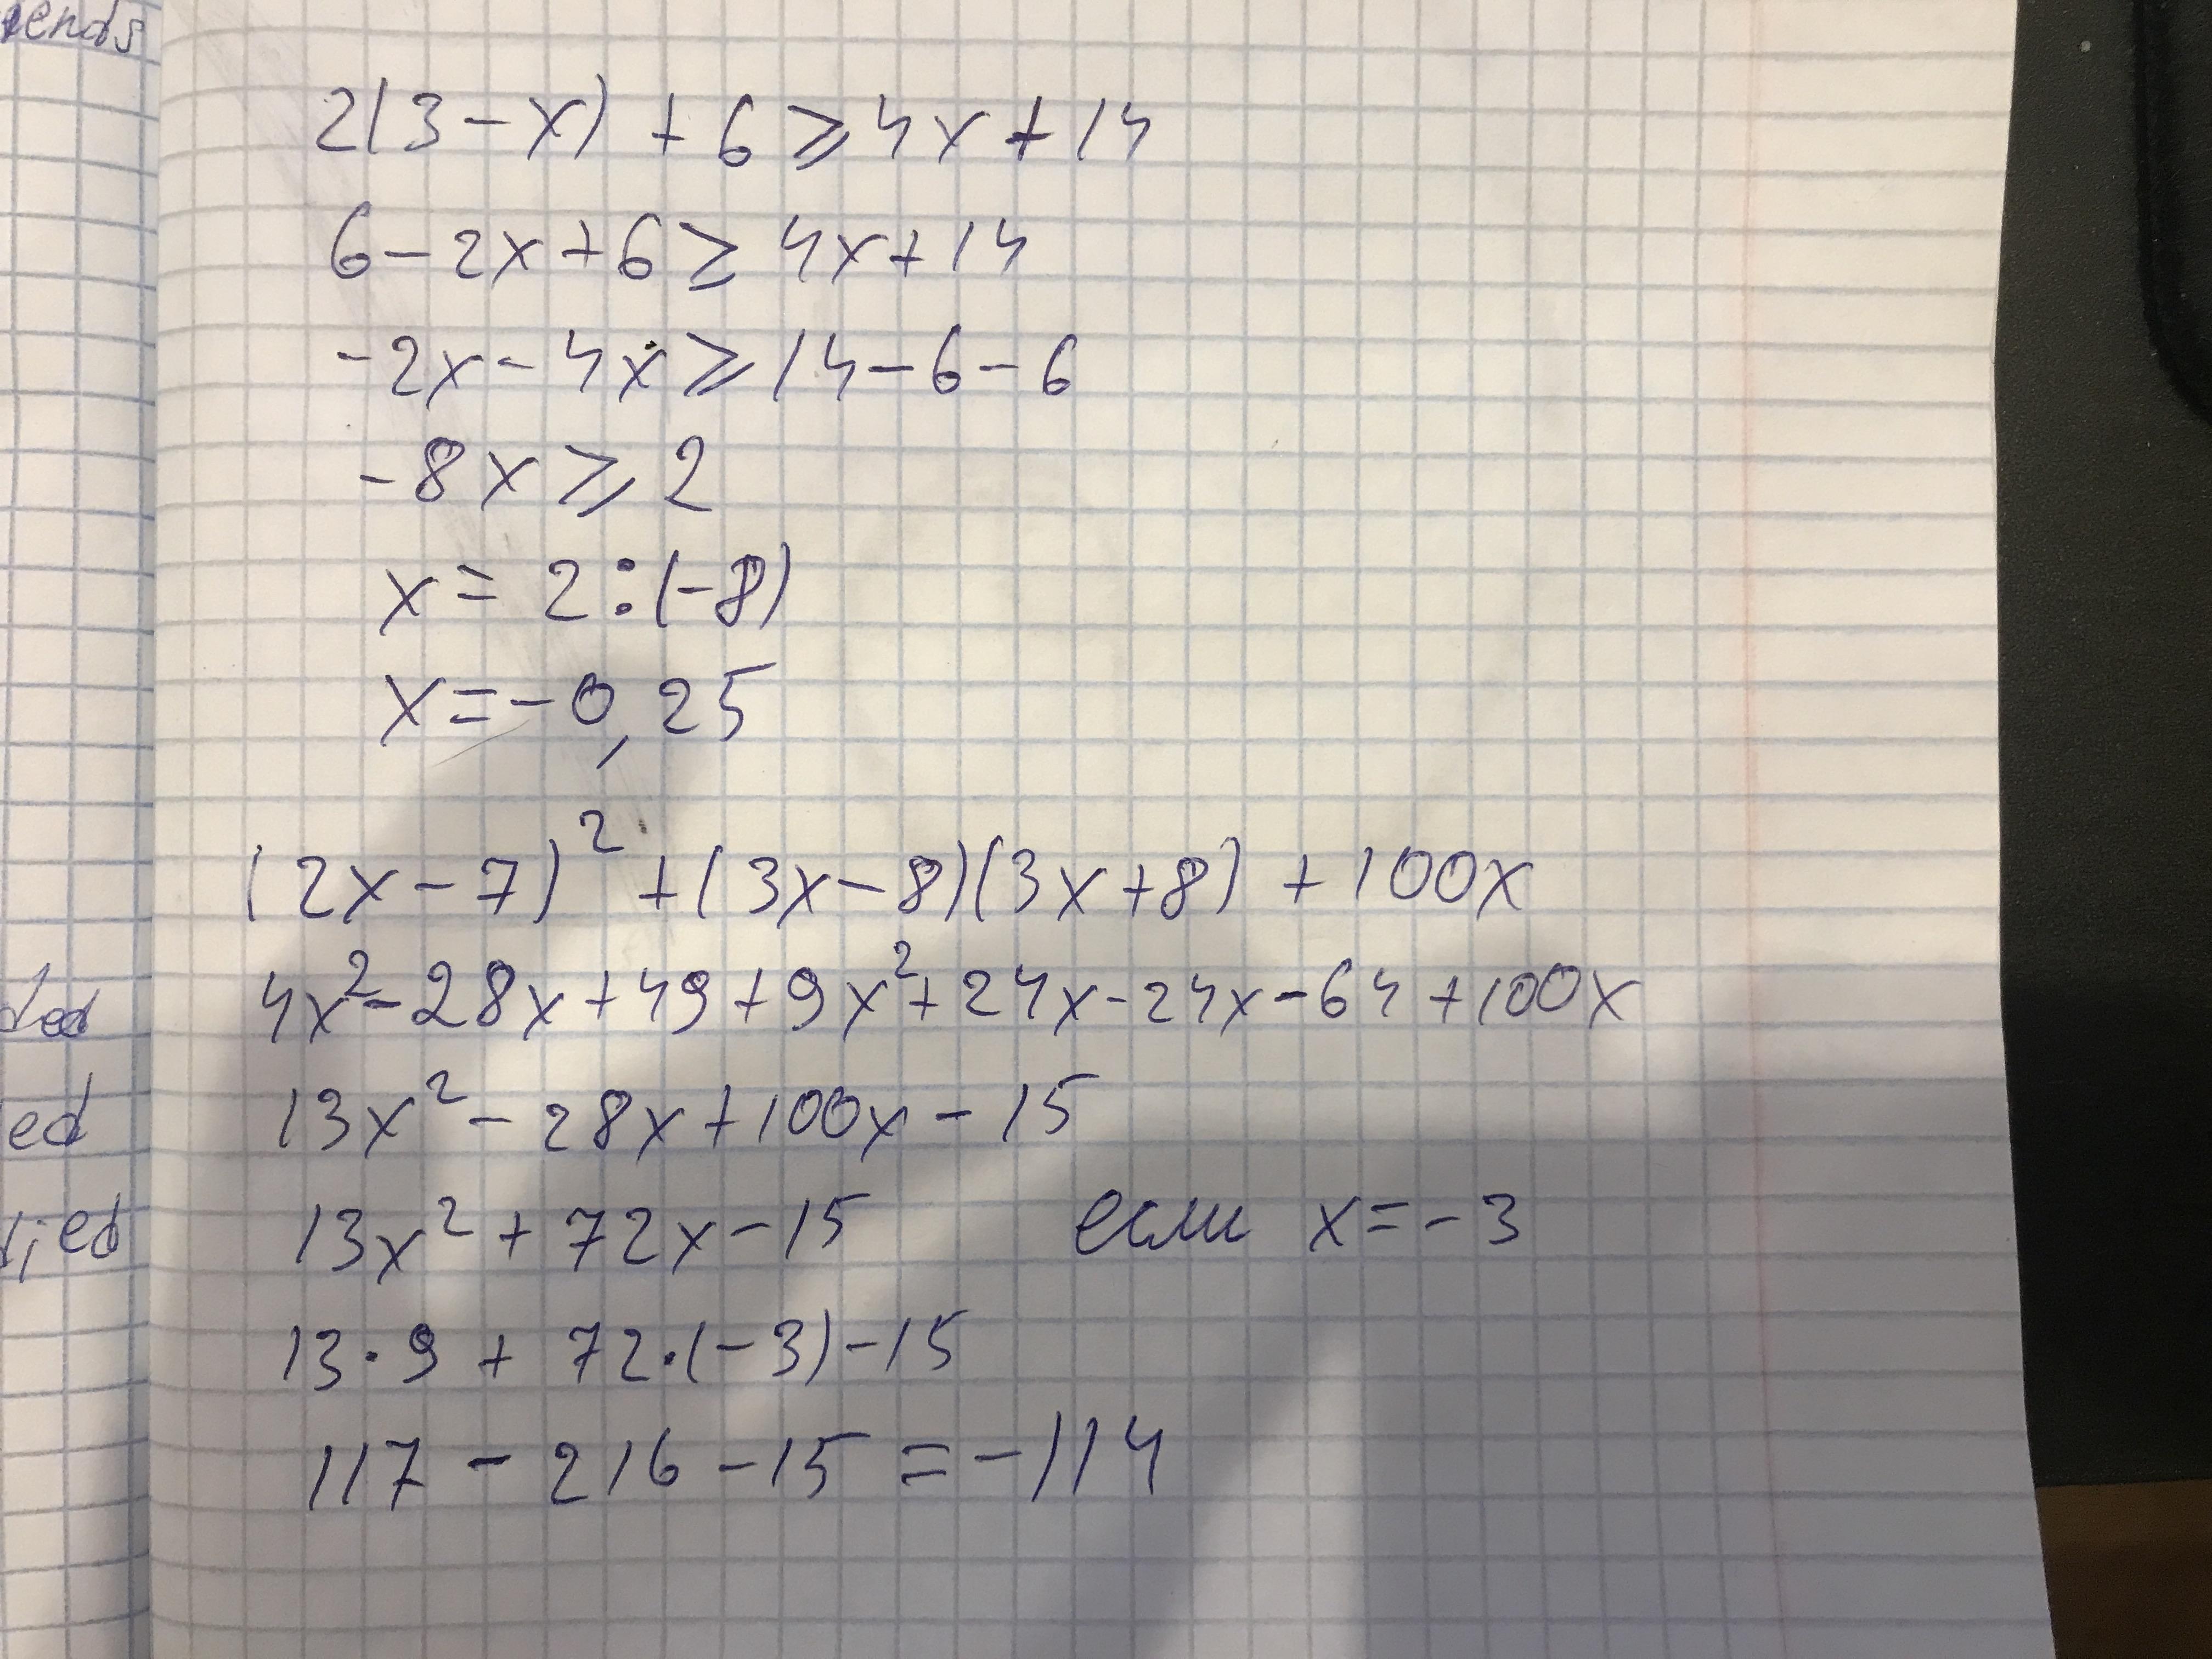 ends
2(3-x) + 6 ⩾ 4x + 14
6 - 2x + 6 ≥ 4x + 14
-2x - 4x ⩾ 14 - 6 - 6
-8x ⩾ 2
x = 2 : (-8)
x = -0,25
(2x - 7)² + (3x - 8)(3x + 8) + 100x
4x² - 28x + 49 + 9x² + 24x - 24x - 64 + 100x
13x² - 28x + 100x - 15
ed
13x² + 72x - 15 если x = -3
ied
13·9 + 72·(-3) - 15
117 - 216 - 15 = -114